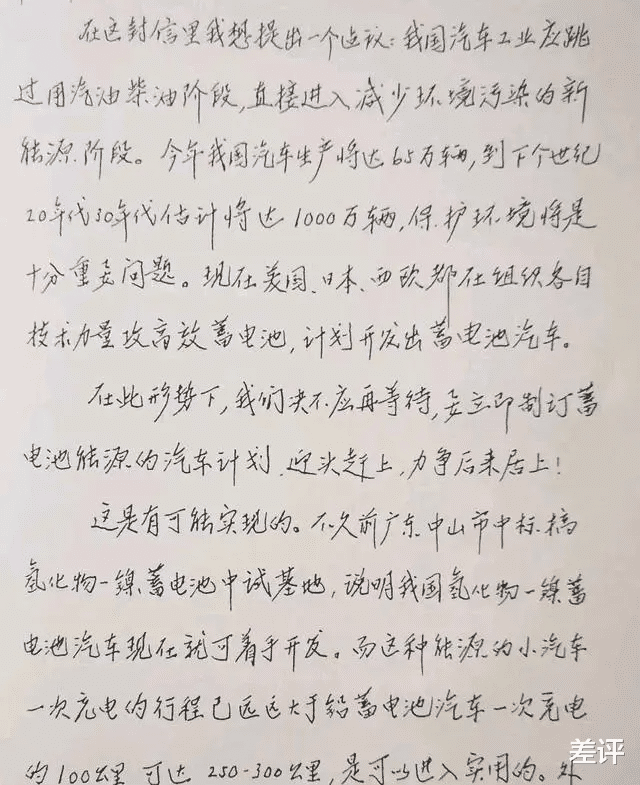 在这封信里我想提出一个建议：我国汽车工业应跳
过用汽油柴油阶段，直接进入减少环境污染的新
能源阶段。今年我国汽车生产将达65万辆，到下个世纪
20年代30年代估计将达1000万辆，保护环境将是
十分重要问题。现在美国、日本、西欧都在组织各自
技术力量攻高效蓄电池，计划开发出蓄电池汽车。
在此形势下，我们决不应再等待，要立即制订蓄
电池能源的汽车计划，迎头赶上，力争后来居上！
这是有可能实现的。不久前广东中山市中标搞
氢化物一镍蓄电池中试基地，说明我国氢化物一镍蓄
电池汽车现在就可着手开发。而这种能源的小汽车
一次充电的行程已远远大于铅蓄电池汽车一次充电
的100公里，可达250-300公里，是可以进入实用的。外
差评